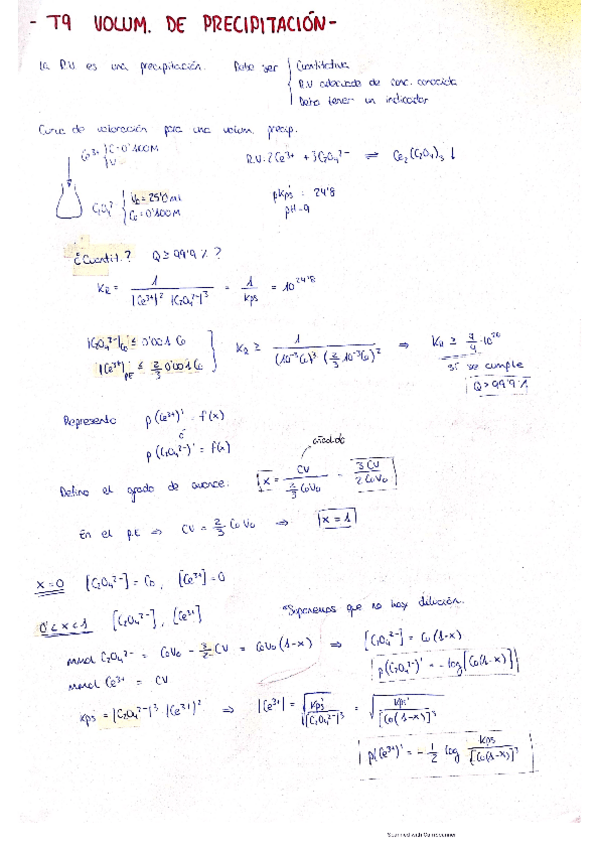 - T9 VOLUM. DE PRECIPITACIÓN -
La R.V. es una precipitación. Debe ser
Cuantitativa
R.V adecuada de conc. conocida
Debe tener un indicador
Curva de valoración para una volum. precip.
Ce³⁺ C=0'100M
V
R.V: 2Ce³⁺ + 3C₂O₄²⁻ ⇌ Ce₂(C₂O₄)₃ ↓
C₂O₄²⁻ V₀ = 25'0 ml
C₀ = 0'100M
pKps' : 24'8
pH = 9
¿Cuantit.? Q ≥ 99'9 % ?
K_R = 1 / |Ce³⁺|² |C₂O₄²⁻|³ = 1 / Kps = 10^24'8
|C₂O₄²⁻| ≤ 0'001 C₀
|Ce³⁺|'_PE ≤ 2/3 0'001 C₀
K_R ≥ 1 / (10⁻³C₀)³ (2/3 10⁻³C₀)² ⇒
sí se cumple
Q > 99'9 %
Represento p(Ce³⁺)' = f(x)
ó
p(C₂O₄²⁻)' = f(x)
añadido
Defino el grado de avance: x = CV / 2/3 C₀V₀ = 3CV / 2C₀V₀
En el P.E ⇒ CV = 2/3 C₀V₀ ⇒ x = 1
x = 0 [C₂O₄²⁻] = C₀, [Ce³⁺] = 0
0 < x < 1 [C₂O₄²⁻], [Ce³⁺] *Suponemos que no hay dilución.
mmol C₂O₄²⁻ = C₀V₀ - 3/2 CV = C₀V₀(1-x) ⇒ [C₂O₄²⁻] = C₀(1-x)
p(C₂O₄²⁻)' = -log[C₀(1-x)]
mmol Ce³⁺ = CV
Kps' = |C₂O₄²⁻|³ · |Ce³⁺|² ⇒ |Ce³⁺| = √(Kps' / [C₂O₄²⁻]³) = √(Kps' / [C₀(1-x)]³)
p(Ce³⁺)' = - 1/2 log Kps / [C₀(1-x)]³
Scanned with CamScanner